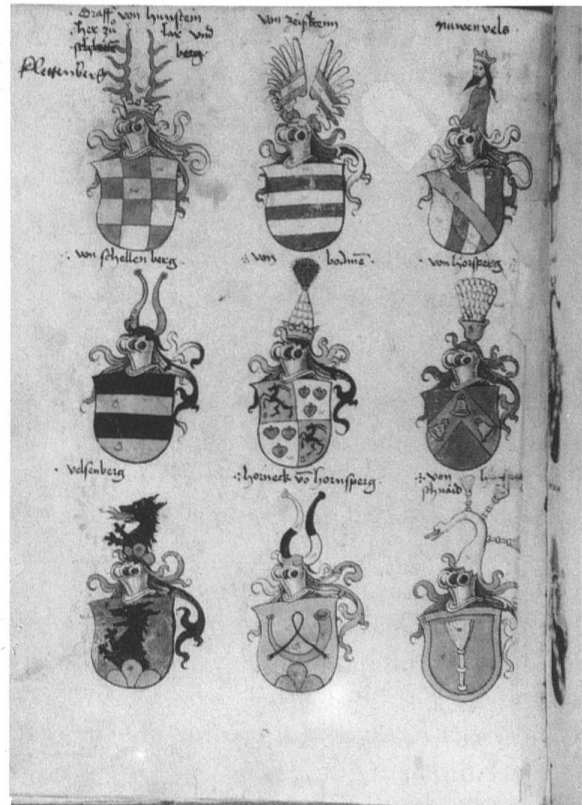 · Graff von Hunstein
· her zu lar und
berg ·
klettenberg
von
nüwenvels
· von schellenberg ·
·:· von bodme ·
· von horsperg
· velsenberg
·:· horneck vō hornsperg ·
·:· von
schnaid